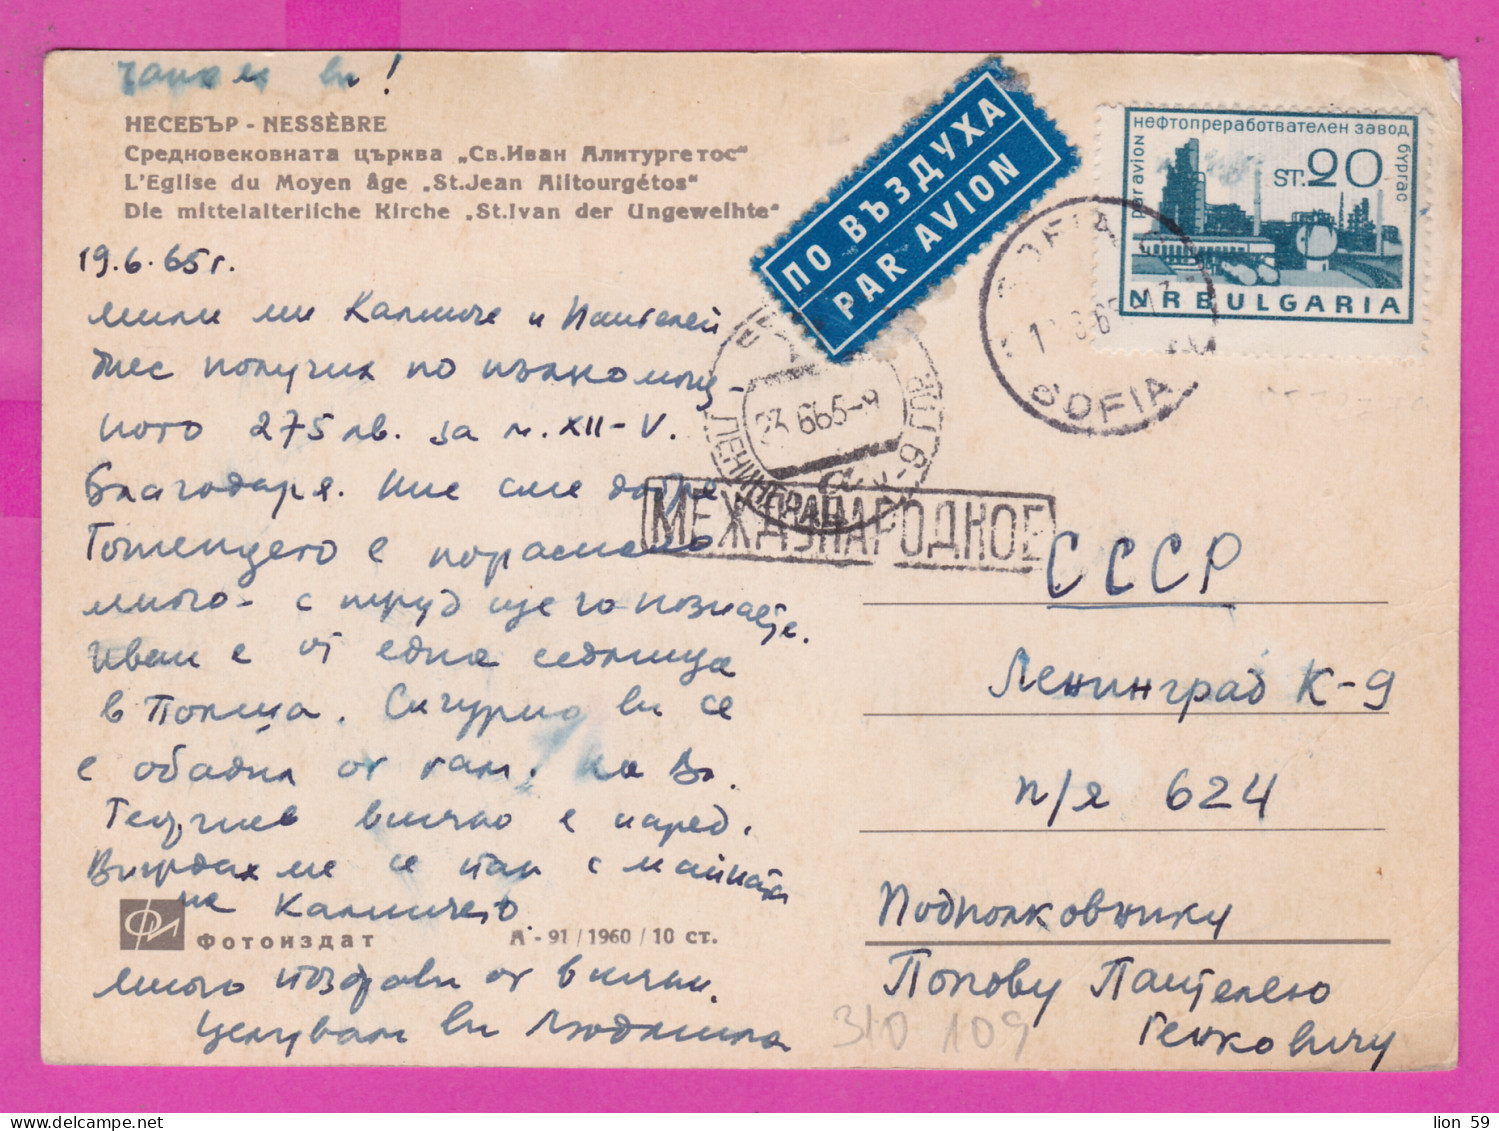 чакам ви!
НЕСЕБЪР - NESSÈBRE
Средновековната църква „Св.Иван Алитургетос"
L'Eglise du Moyen âge „St.Jean Alitourgétos"
Die mittelalterliche Kirche „St.Ivan der Ungeweihte"
19.6.65г.
мили ми Калинче и Пантелей
Днес получих по пълномощ-
ното 275 лв. за м. XII-V.
Благодаря. Ние сме добре
Гошенцето е пораснало
много - с труд ще го познаете.
Иван е от една седмица
в Полша. Сигурно ви се
е обадил от там. На Вл.
Георгиев всичко е наред.
Виждахме се пак с майката
на Калинчето
Фотоиздат А - 91 / 1960 / 10 ст.
много поздрави от всички.
Целувам ви Людмила
ПО ВЪЗДУХА
PAR AVION
нефтопреработвателен завод
бургас
par avion
ST. 20
N R BULGARIA
SOFIA
SOFIA
ЛЕНИНГРАД
23.665-9
МЕЖДУНАРОДНОЕ
СССР
Ленинград К-9
п/я 624
Подполковнику
Попову Пантелею
Генковичу
310 109
lion 59